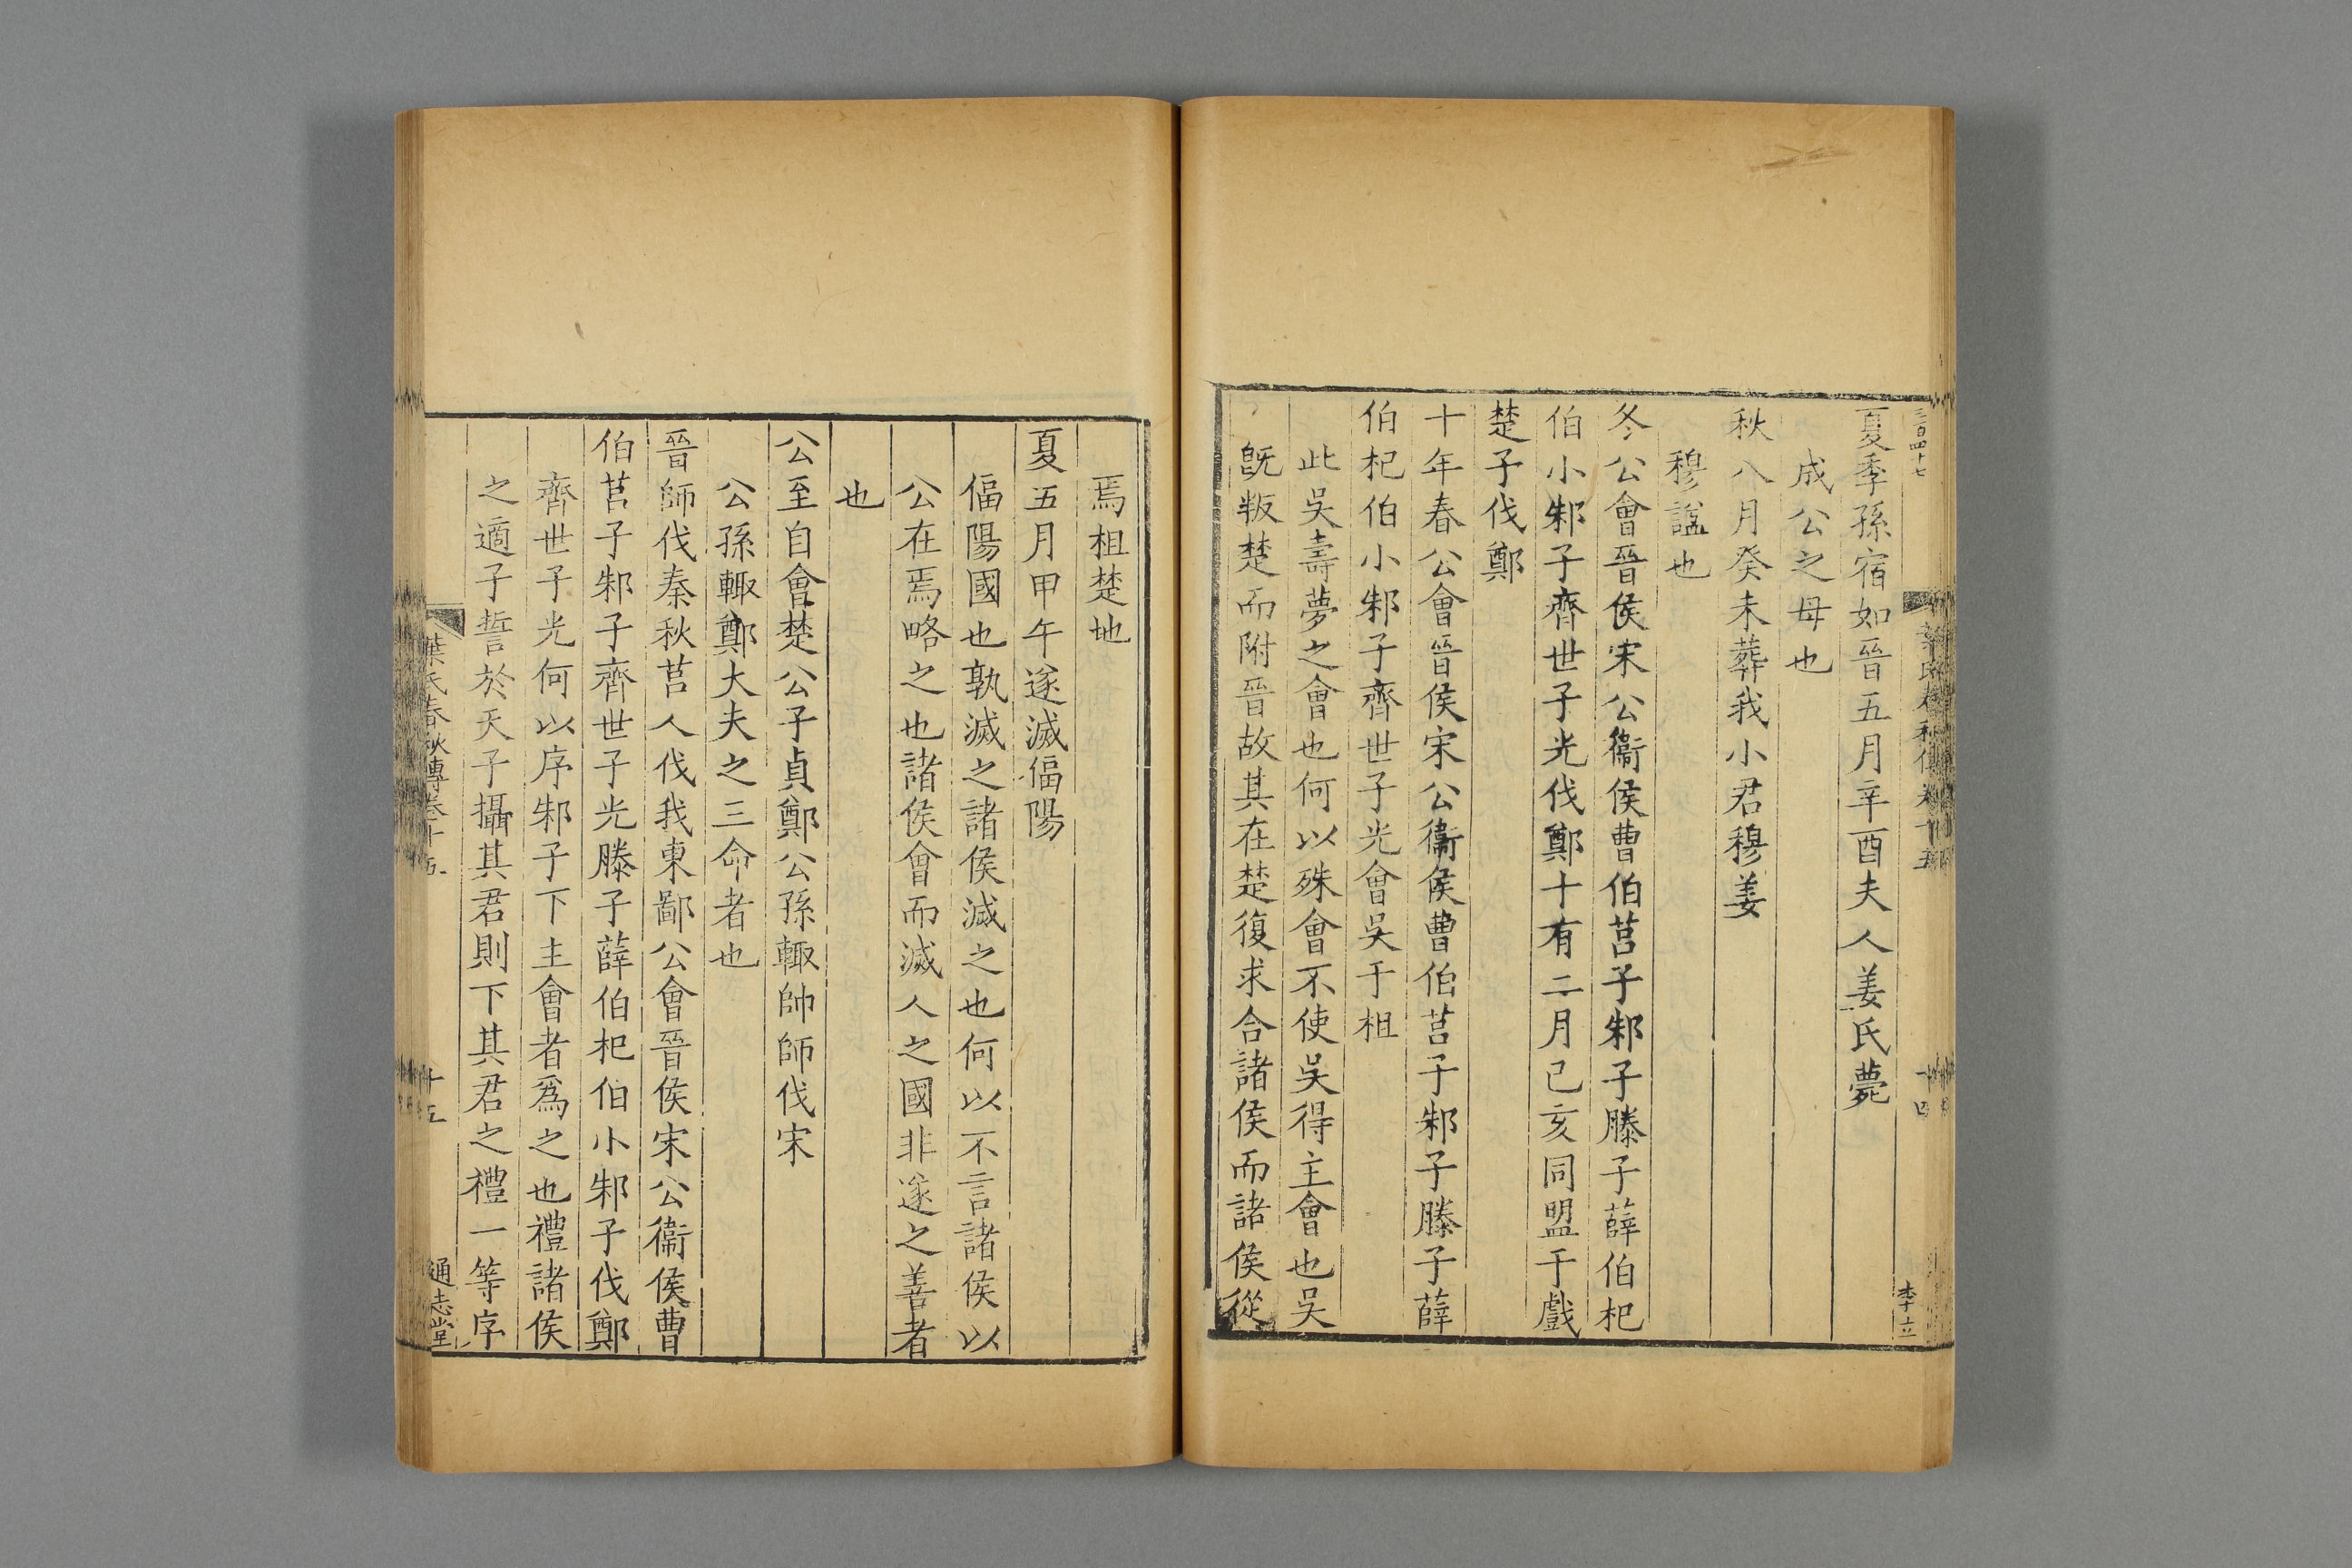 三百四十七
夏季孫宿如晉五月辛酉夫人姜氏薨
成公之母也
秋八月癸未葬我小君穆姜
穆諡也
冬公會晉侯宋公衞侯曹伯莒子邾子滕子薛伯杞
伯小邾子齊世子光伐鄭十有二月己亥同盟于戲
楚子伐鄭
十年春公會晉侯宋公衞侯曹伯莒子邾子滕子薛
伯杞伯小邾子齊世子光會吳于柤
此吳壽夢之會也何以殊會不使吳得主會也吳
旣叛楚而附晉故其在楚復求合諸侯而諸侯從
焉柤楚地
夏五月甲午遂滅偪陽
偪陽國也孰滅之諸侯滅之也何以不言諸侯以
公在焉略之也諸侯會而滅人之國非遂之善者
也
公至自會楚公子貞鄭公孫輙帥師伐宋
公孫輙鄭大夫之三命者也
晉師伐秦秋莒人伐我東鄙公會晉侯宋公衞侯曹
伯莒子邾子齊世子光滕子薛伯杞伯小邾子伐鄭
齊世子光何以序邾子下主會者爲之也禮諸侯
之適子誓於天子攝其君則下其君之禮一等序
葉氏春秋傳卷十五
十五
通志堂